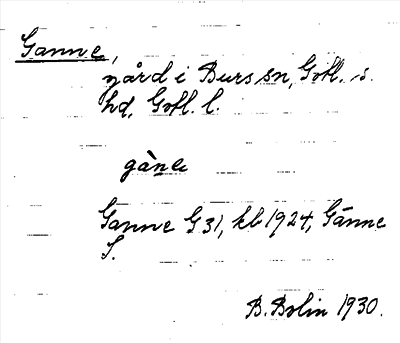 Ganne,
gård i Burs sn, Gotl. s.
hd, Gotl. l.
gàne
Ganne G 31, kb 1924, Gānne
S.
B. Bolin 1930.